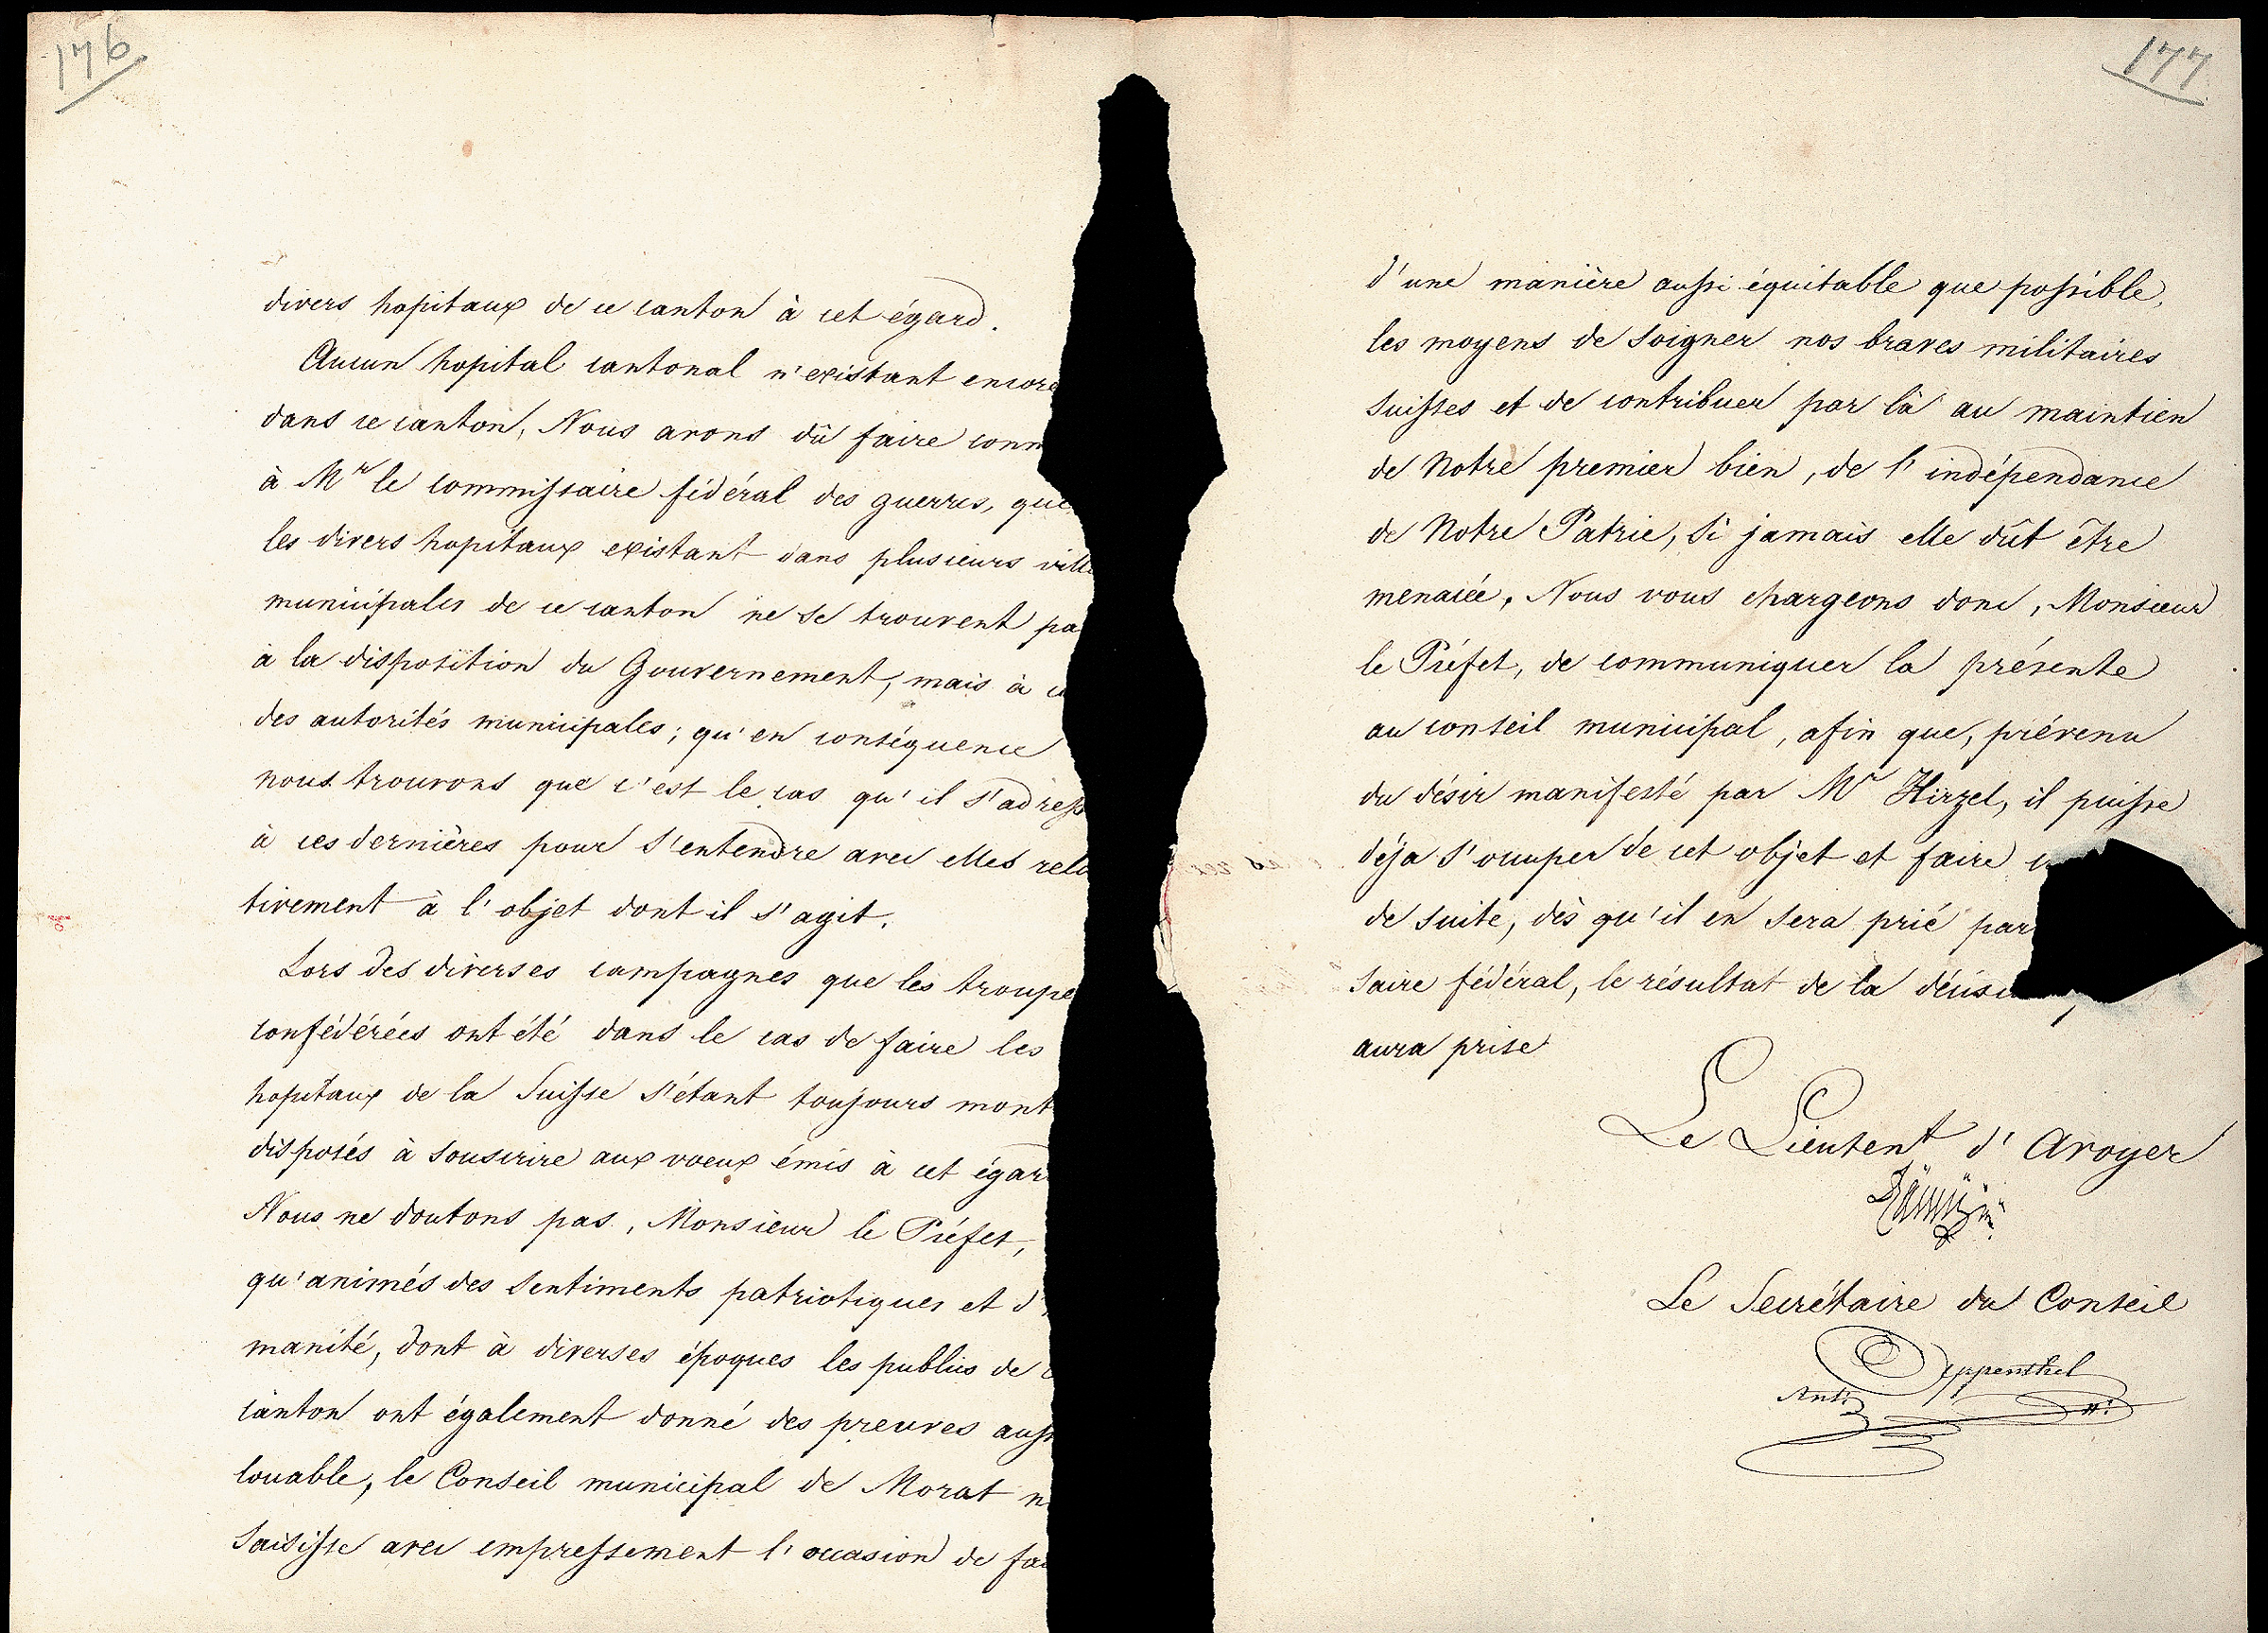 176
divers hopitaux de ce canton à cet égard.
Aucun hopital cantonal n'existant encore
dans ce canton, Nous avons dû faire conn
à Mr le commissaire fédéral des guerres, que
les divers hopitaux existant dans plusieurs ville
municipales de ce canton ne se trouvent pa
à la disposition du Gouvernement, mais à c
des autorités municipales; qu'en conséquence
nous trouvons que c'est le cas qu'il s'adress
à ces dernières pour s'entendre avec elles rela
tivement à l'objet dont il s'agit.
Lors des diverses campagnes que les troupe
confédérées ont été dans le cas de faire les
hopitaux de la Suisse s'étant toujours mont
disposés à souscrire aux voeux émis à cet égar
Nous ne doutons pas, Monsieur le Préfet,
qu'animés des sentiments patriotiques et d'
manité, dont à diverses époques les publics de c
canton ont également donné des preuves auss
louable, le Conseil municipal de Morat n
saisisse avec empressement l'occasion de fa
177
d'une manière aussi équitable que possible,
les moyens de soigner nos braves militaires
suisses et de contribuer par là au maintien
de Notre premier bien, de l'indépendance
de Notre Patrie, si jamais elle dût être
menacée, Nous vous chargeons donc, Monsieur
le Préfet, de communiquer la présente
au conseil municipal, afin que, prévenu
du désir manifesté par Mr Hirzel, il puisse
déja s'occuper de cet objet et faire
de suite, dès qu'il en sera prié par
saire fédéral, le résultat de la décisi
aura prise
Le Lieutent d'Avoyer
Le Secrétaire du Conseil